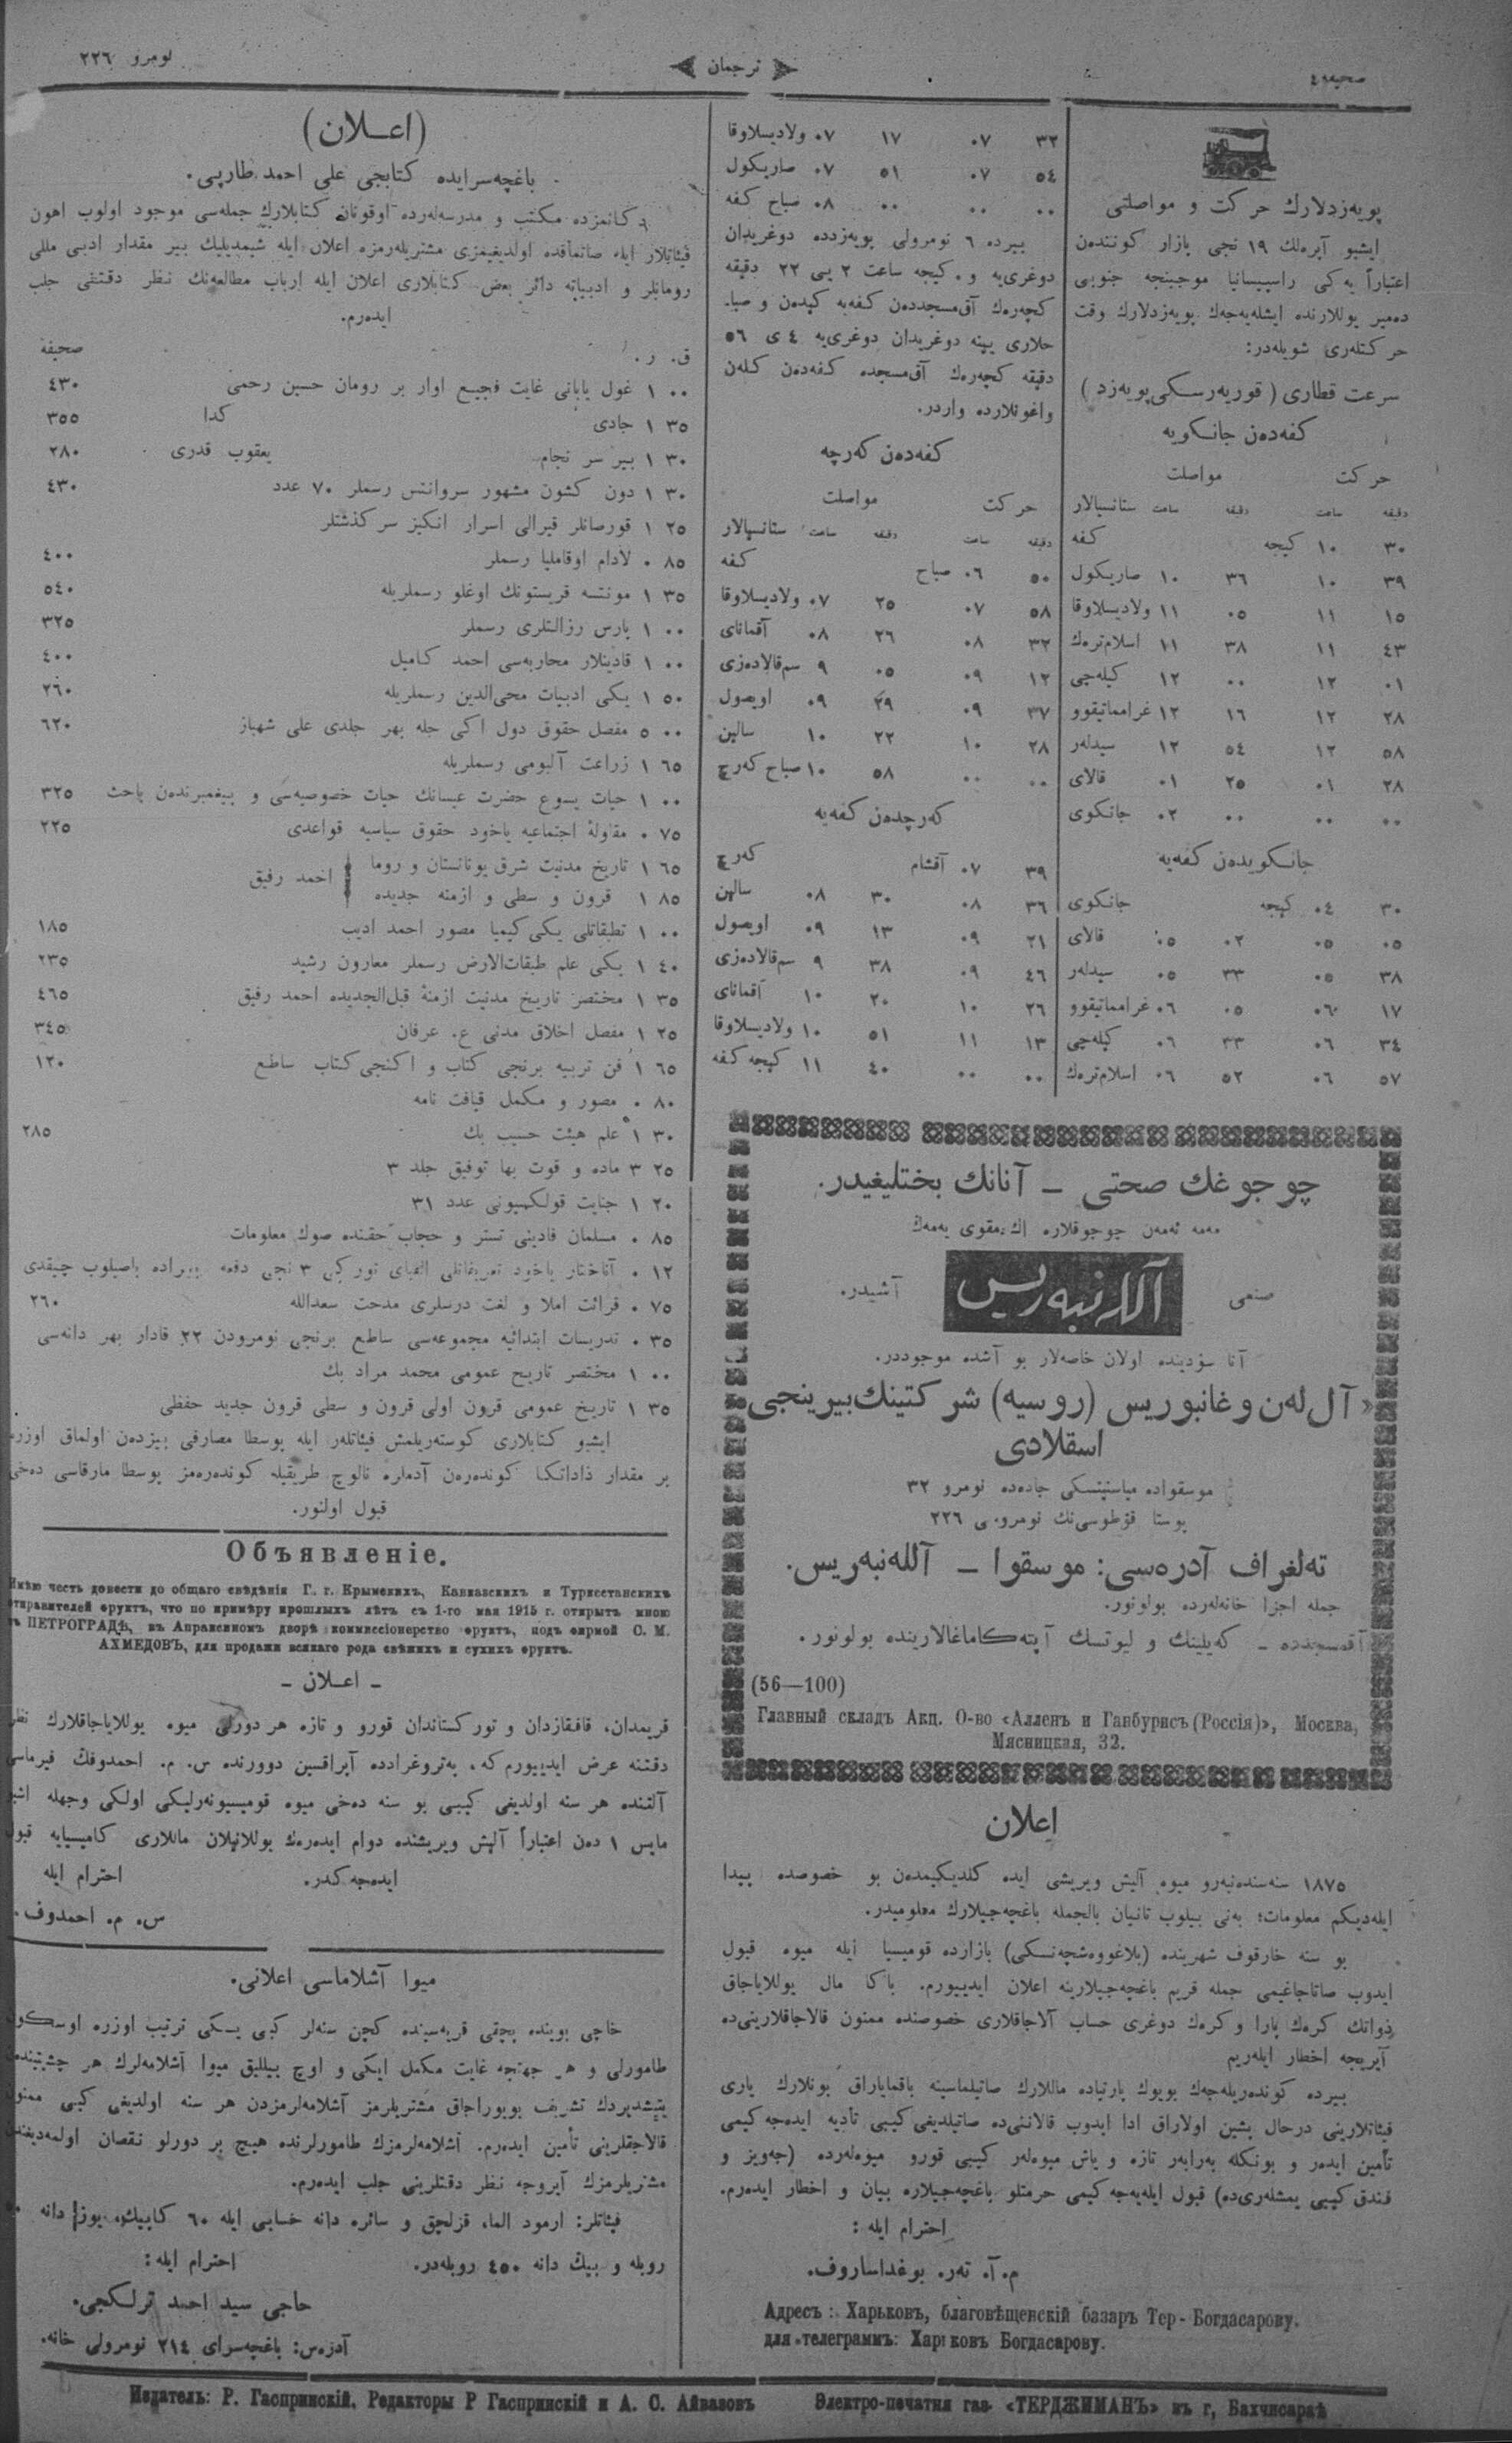 صحیفه٤
ترجمان
نومرو ٢٢٦
پویه‌زدلارك حركت و مواصلتی
ایشبو آپره‌لك ١٩ نجی بازار كونندن
اعتباراً یه‌كی راسپیسانیا موجبنجه جنوبی
ده‌میر یوللارنده ایشله‌یه‌جه‌ك پویه‌زدلارك وقت
حركتله‌ری شویله‌در:
سرعت قطاری (قوریه‌رسكی پویه‌زد)
كفه‌دەن جانكویه
حركت مواصلت
دقیقه ساعت دقیقه ساعت ستانسیالار
٣٠ ١٠ كیجه كفه
٣٩ ١٠ ٣٦ ١٠ صاریكول
١٥ ١١ ٠٥ ١١ ولادیسلاوقا
٤٣ ١١ ٣٨ ١١ اسلام‌تره‌ك
٠١ ١٢ ٠٠ ١٢ كیله‌جی
٢٨ ١٢ ١٦ ١٢ غرامماتیقوو
٥٨ ١٢ ٥٤ ١٢ سیدله‌ر
٢٨ ٠١ ٢٥ ٠١ قالای
٠٠ ٠٠ ٠٠ ٠٢ جانكوی
جانكویدەن كفه‌یه
٣٠ ٠٤ كیجه جانكوی
٠٥ ٠٥ ٠٢ ٠٥ قالای
٣٨ ٠٥ ٣٣ ٠٥ سیدله‌ر
١٧ ٠٦ ٠٥ ٠٦ غرامماتیقوو
٣٤ ٠٦ ٣٣ ٠٦ كیله‌جی
٥٧ ٠٦ ٥٢ ٠٦ اسلام‌تره‌ك
٣٢ ٠٧ ١٧ ٠٧ ولادیسلاوقا
٥٤ ٠٧ ٥١ ٠٧ صاریكول
٠٠ ٠٠ ٠٠ ٠٨ صباح كفه
بیرده ٦ نومرولی پویه‌زدده دوغریدان
دوغری‌یه و. كیجه ساعت ٢ یی ٢٢ دقیقه
كچه‌رەك آق‌مسجددەن كفه‌یه كیدەن و صبا-
حلاری یینه دوغریدان دوغری‌یه ٤ ی ٥٦
دقیقه كچه‌رەك آق‌مسجده كفه‌دەن كلەن
واغونلارده واردر.
كفه‌دەن كەرچه
حركت مواصلت
دقیقه ساعت دقیقه ساعت ستانسیالار
٥٠ ٠٦ صباح كفه
٥٨ ٠٧ ٢٥ ٠٧ ولادیسلاوقا
٣٢ ٠٨ ٢٦ ٠٨ آقمانای
١٢ ٠٩ ٠٥ ٩ سم‌قالادەزی
٣٧ ٠٩ ٢٩ ٠٩ اویصول
٢٨ ١٠ ٢٢ ١٠ سالین
٠٠ ٠٠ ٥٨ ١٠ صباح كەرچ
كەرچدەن كفه‌یه
٣٩ ٠٧ آقشام كەرچ
٣٦ ٠٨ ٣٠ ٠٨ سالین
٢١ ٠٩ ١٣ ٠٩ اویصول
٤٦ ٠٩ ٣٨ ٩ سم‌قالادەزی
٢٦ ١٠ ٢٠ ١٠ آقمانای
١٣ ١١ ٥١ ١٠ ولادیسلاوقا
٠٠ ٠٠ ٤٠ ١١ كیجه كفه
چوجوغك صحتی – آنانك بختلیغیدر.
مه‌مه ئه‌مه‌ن چوجوقلاره اك مقوی یه‌مه‌ك
صنعی آللەنبەریس آشیدر.
آنا سؤدینده اولان خاصه‌لار بو آشده موجوددر.
«آل‌لەن وغانبوریس (روسیه) شركتینك بیرینجی
اسقلادی
موسقواده میاسنیتسكی جاده‌ده نومرو ٣٢
پوستا قوطوسی‌نك نومروىی ٢٢٦
تەلغراف آدرەسی: موسقوا – آللەنبەریس.
جمله اجزا خانه‌له‌رده بولونور.
آقمسجدده – كه‌یلینك و لیوتسك آپته‌كاماغالارینده بولونور.
(56—100)
Главный складъ Акц. О-во «Алленъ и Ганбурисъ (Россія)», Москва,
Мясницкая, 32.
اعلان
١٨٧٥ سنه‌سندەنبەرو میوه آلیش ویریشی ایده كلدیكیمدەن بو خصوصده پیدا
ایله‌دیكم معلومات؛ بەنی بیلوب تانیان بالجمله باغچه‌جیلارك معلومیدر.
بو سنه خارقوف شهرینده (بلاغووەشچەنسكی) بازارده قومیسیا ایله میوه قبول
ایدوب صاتاجاغیمی جمله قریم باغچه‌جیلارینه اعلان ایدییورم. باكا مال یوللایاجاق
ذواتك كرەك پارا و كرەك دوغری حساب آلاجاقلاری خصوصنده ممنون قالاجاقلارینی‌ده
آیریجه اخطار ایله‌ریم
بیرده كوندەریله‌جەك بویوك پارتیاده ماللارك صاتیلماسینه باقمایاراق بونلارك یاری
فیئاتلارینی درحال پشین اولاراق ادا ایدوب قالاننی‌ده صاتیلدیغی كیبی تأدیه ایدەجه‌كیمی
تأمین ایدەر و بونكله بەرابەر تازه و یاش میوەلەر كیبی قورو میوەلەرده (جەویز و
فندق كیبی یمشلەری‌ده) قبول ایله‌یه‌جه‌كیمی حرمتلو باغچه‌جیلاره بیان و اخطار ایدەرم.
احترام ایله:
م. آ. تەر. بوغداساروف.
Адресъ: Харьковъ, благовѣщенскій базаръ Тер-Богдасарову.
для телеграммъ: Харьковъ Богдасарову.
(اعلان)
باغچه‌سرایده كتابجی علی احمد طارپی.
دكانمزده مكتب و مدرسه‌لەرده اوقونان كتابلارك جمله‌سی موجود اولوب اهون
فیئاتلار ایله صاتماقده اولدیغیمزی مشتریلەرمزه اعلان ایله شیمدیلیك بیر مقدار ادبی مللی
رومانلر و ادبیاته دائر بعض كتابلاری اعلان ایله ارباب مطالعه‌نك نظر دقتنی جلب
ایدەرم.
ق. ر. صحیفه
٠٠ ١ غول یابانی غایت فجیع اوار بر رومان حسین رحمی ٤٣٠
٣٥ ١ جادی كذا ٣٥٥
٣٠ ١ بیر سر نجام یعقوب قدری ٢٨٠
٣٠ ١ دون كشون مشهور سروانتس رسملر ٧٠ عدد ٤٣٠
٢٥ ١ قورصانلر قیرالی اسرار انكیز سركذشتلر
٨٥ ٠ لادام اوقاملیا رسملر ٤٠٠
٣٥ ١ مونتسه قریستونك اوغلو رسملریله ٥٤٠
٠٠ ١ پارس رزالتلری رسملر ٣٢٥
٠٠ ١ قادینلار محاربه‌سی احمد كامیل ٤٠٠
٥٠ ١ یكی ادبیات محی‌الدین رسملریله ٢٦٠
٠٠ ٥ مفصل حقوق دول اكی جله بهر جلدی علی شهباز ٦٢٠
٦٥ ١ زراعت آلبومی رسملریله
٠٠ ١ حیات یسوع حضرت عیسانك حیات خصوصیه‌سی و پیغمبرندەن باحث ٣٢٥
٧٥ ٠ مقاولهٔ اجتماعیه یاخود حقوق سیاسیه قواعدی ٢٢٥
٦٥ ١ تاریخ مدنیت شرق یونانستان و روما
احمد رفیق
٨٥ ١ قرون و سطی و ازمنه جدیده
٠٠ ١ تطبقاتلی یكی كیمیا مصور احمد ادیب ١٨٥
٤٠ ١ یكی علم طبقات‌الارض رسملر معارون رشید ٢٣٥
٣٥ ١ مختصر تاریخ مدنیت ازمنهٔ قبل‌الجدیده احمد رفیق ٤٦٥
٢٥ ١ مفصل اخلاق مدنی ع. عرفان ٣٤٥
٦٥ ١ فن تربیه برنجی كتاب و اكنجی كتاب ساطع ١٢٠
٨٠ ٠ مصور و مكمل قیافت نامه
٣٠ ١ علم هیئت حسیب بك ٢٨٥
٢٥ ٣ ماده و قوت بها توفیق جلد ٣
٢٠ ١ جنایت قولكسیونی عدد ٣١
٨٥ ٠ مسلمان قادینی تستر و حجاب حقنده صوك معلومات
١٢ ٠ آناختار یاخود تعریفاتلی الفبای توركی ٣ نجی دفعه بیراده باصیلوب چیقدی
٧٥ ٠ قرائت املا و لغت درسلری مدحت سعدالله ٢٦٠
٣٥ ٠ تدریسات ابتدائیه مجموعه‌سی ساطع برنجی نومرودن ٢٢ قادار بهر دانه‌سی
٠٠ ١ مختصر تاریخ عمومی محمد مراد بك
٣٥ ١ تاریخ عمومی قرون اولی قرون و سطی قرون جدید حفظی
ایشبو كتابلاری كوستەریلمش فیئاتلەر ایله پوسطا مصارفی بیزدەن اولماق اوزره
بر مقدار ذاداتكا كوندەرەن آدملره نالوج طریقیله كوندەرەمز پوسطا مارقاسی دەخی
قبول اولنور.
Объявленіе.
Имѣю честь довести до общаго свѣдѣнія Г. г. Крымскихъ, Кавказскихъ и Туркестанскихъ
отправителей фруктъ, что по примѣру прошлыхъ лѣтъ съ 1-го мая 1915 г. открытъ мною
въ ПЕТРОГРАДѢ, въ Апраксиномъ дворѣ коммиссіонерство фруктъ, подъ фирмой С. М.
АХМЕДОВЪ, для продажи всякаго рода свѣжихъ и сухихъ фруктъ.
– اعلان –
قریمدان، قافقازدان و توركستاندان قورو و تازه هر دورلی میوه یوللایاجاقلارك نظر
دقتنه عرض ایدییورم كه، پەتروغرادده آپراقسین دوورنده س. م. احمدوفڭ فیرماسی
آلتنده هر سنه اولدیغی كیبی بو سنه دەخی میوه قومیسیونەرلیكی اولكی وجهله اشبو
مایس ١ دەن اعتباراً آلیش ویریشنده دوام ایدەرەك یوللانیلان ماللاری كامیسیایه قبول
ایدەجه‌كدر. احترام ایله
س. م. احمدوف.
میوا آشلاماسی اعلانی.
حاجی بوینده بچقی قریه‌سینده كچن سنه‌لر كبی یسكی ترتیب اوزره اوسكون
طامورلی و هر جهتجه غایت مكمل ایكی و اوچ ییللیق میوا آشلامه‌لرك هر جشیتیندەن
یتیشدیردك تشریف بویوراجاق مشتریلرمز آشلامه‌لرمزدن هر سنه اولدیغی كبی ممنون
قالاجقلرینی تأمین ایدەرم. آشلامه‌لرمزك طامورلرنده هیچ بر دورلو نقصان اولمه‌دیغندن
مشتریلرمزك آیروجه نظر دقتلرینی جلب ایدەرم.
فیئاتلر: ارمود الما، قزلچق و سائره دانه حسابی ایله ٦٠ كاپیك، یوز دانه
روبله و بیڭ دانه ٤٥٠ روبله‌در. احترام ایله:
حاجی سید احمد ترلكجی.
آدرەس: باغچه‌سرای ٢١٤ نومرولی خانه.
Издатель: Р. Гаспринскій. Редакторы Р Гаспринскій и А. С. Айвазовъ
Электро-печатня газ. «ТЕРДЖИМАНЪ» въ г, Бахчисараѣ